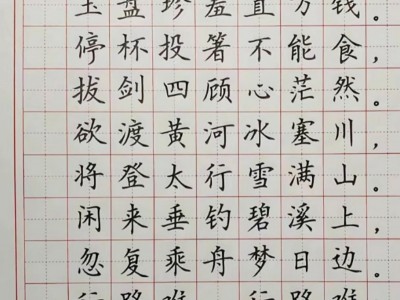 玉盘珍羞直万钱。
停杯投箸不能食,
拔剑四顾心茫然。
欲渡黄河冰塞川,
将登太行雪满山。
闲来垂钓碧溪上,
忽复乘舟梦日边。
行路难 行路难